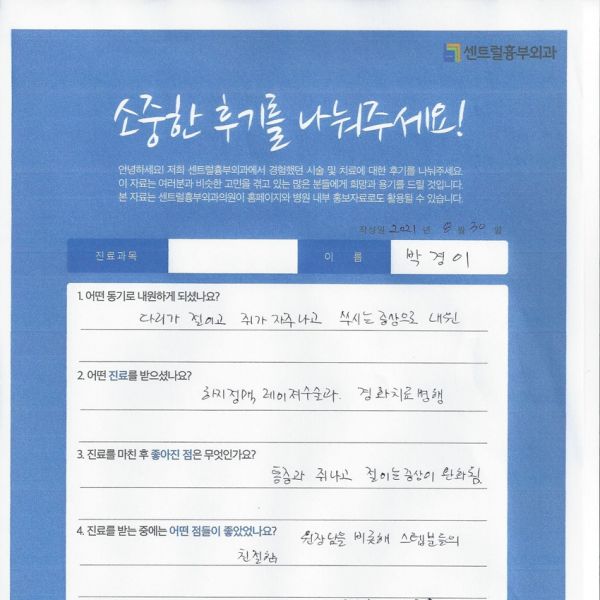 센트럴흉부외과
소중한 후기를 나눠주세요!
안녕하세요! 저희 센트럴흉부외과에서 경험했던 시술 및 치료에 대한 후기를 나눠주세요.
이 자료는 여러분과 비슷한 고민을 겪고 있는 많은 분들에게 희망과 용기를 드릴 것입니다.
본 자료는 센트럴흉부외과의원이 홈페이지와 병원 내부 홍보자료로도 활용될 수 있습니다.
작성일 2021 년 8 월 30 일
진료과목 이 름 박경이
1. 어떤 동기로 내원하게 되셨나요?
다리가 절이고 쥐가 자주나고 쑤시는 증상으로 내원
2. 어떤 진료를 받으셨나요?
하지정맥, 레이저수술과. 경화치료병행
3. 진료를 마친 후 좋아진 점은 무엇인가요?
통증과 쥐나고 절이는증상이 완화됨
4. 진료를 받는 중에는 어떤 점들이 좋았었나요? 원장님을 비롯해 스텝분들의
친절함